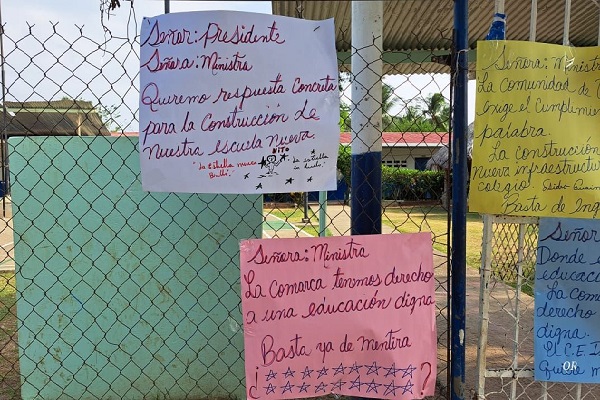 Señor: Presidente
Señora: Ministra
Queremo respuesta Concreta
para la Construcción de
Nuestra escuela Nueva.
"La estrella nunca
Basta ya de mentira
Señora: Ministra
La Comarca tenemos derecho
a una educación digna
¿ ?
Señora: Ministra
La Comunidad de
Exige el Cumplimien
palabra.
La construcción
Nueva infraestructu
Colegio.
Basta de Ing
Señor
Donde e
educac
La Com
derecho
digna.
El C.E.I
Quere m